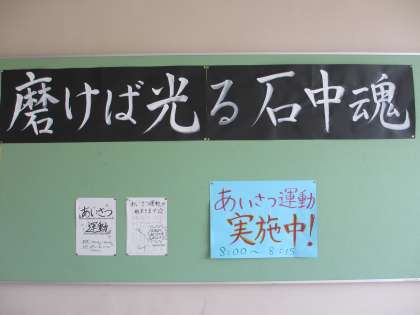 磨けば光る石中魂
あいさつ
運動
あいさつ運動が
あいさつ運動
実施中!
8:00～8:15